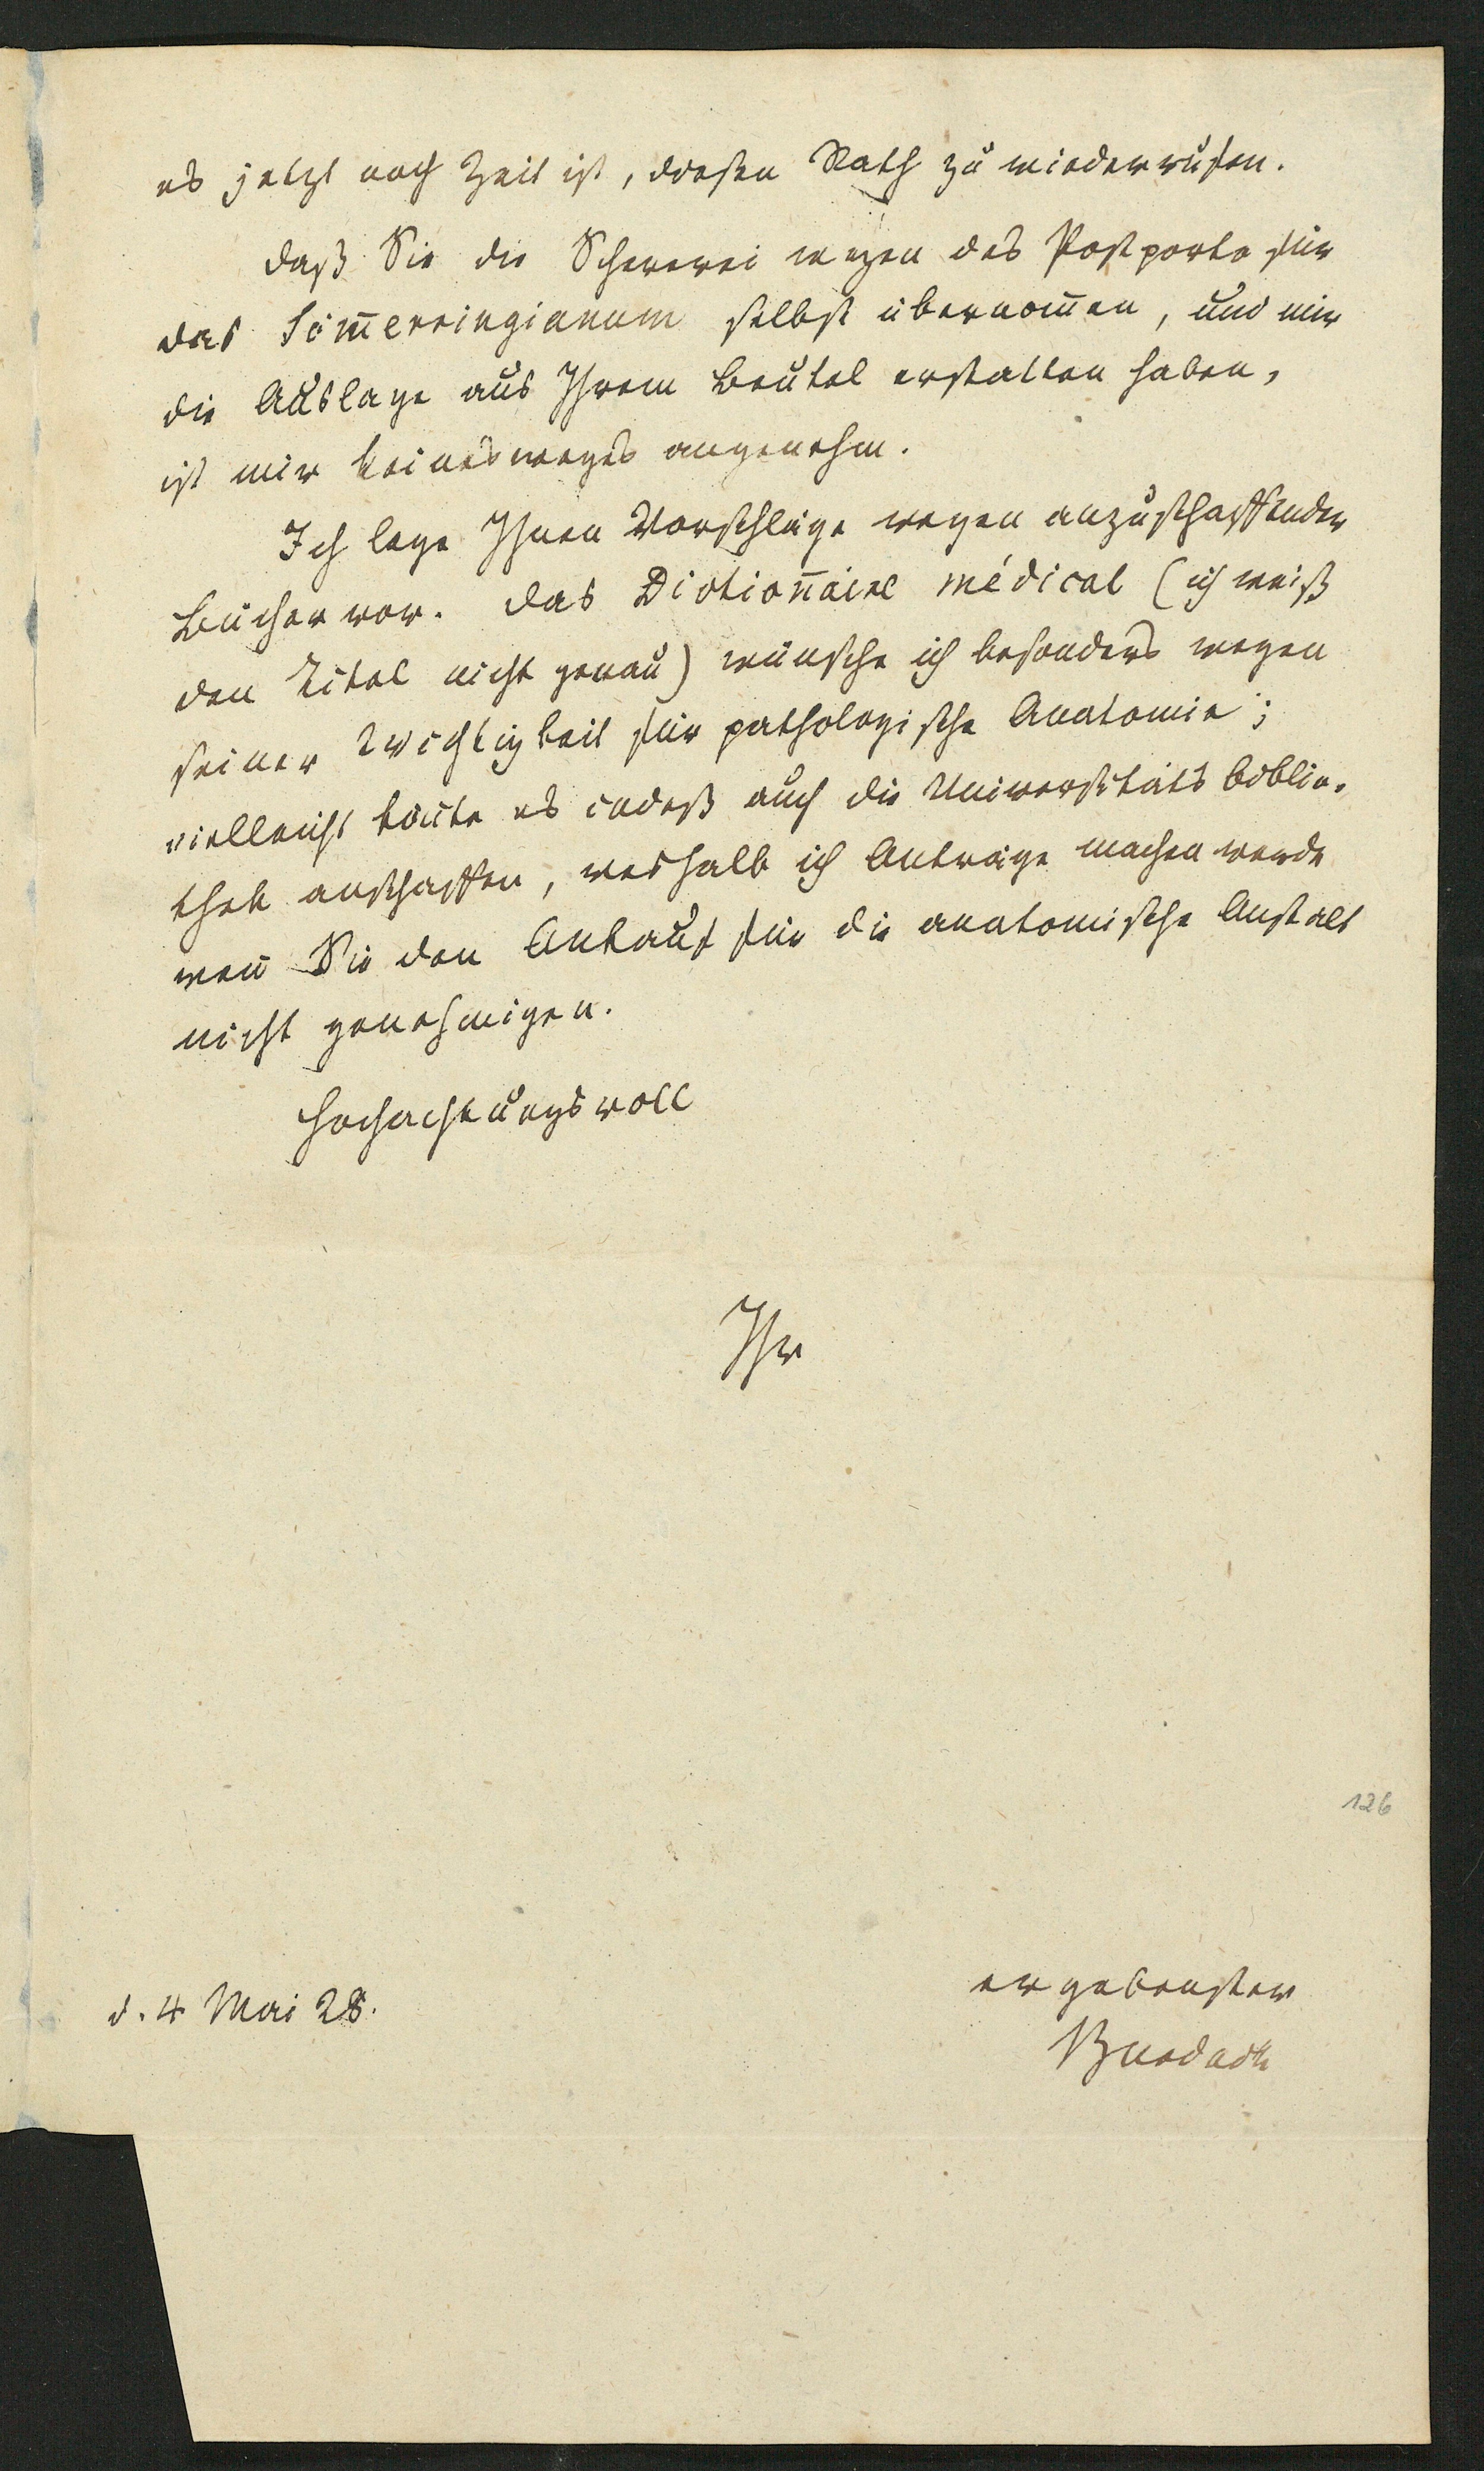 es jetzt noch Zeit ist, diesen Rath zu wiederrufen.
daß Sie die Schererei wegen des Postporto für
das Sömmerringianum selbst übernom̅en, und mir
die Auslage aus Ihrem Beutel erstatten haben,
ist mir keinesweges angenehm.
Ich lege Ihnen Vorschläge wegen anzuschaffender
Bücher vor. das Dictionnaire médical (ich weiß
den Titel nicht genau) wünsche ich besonders wegen
seiner Wichtigkeit für pathologische Anatomie;
vielleicht kön̅te es indeß auch die Universitäts biblio-
thek anschaffen, weshalb ich Anträge machen werde
wen̅ Sie den Ankauf für die anatomische Anstalt
nicht genehmigen.
Hochachtungsvoll
Ihr
126
ergebenster
d. 4 Mai 28.
Burdach